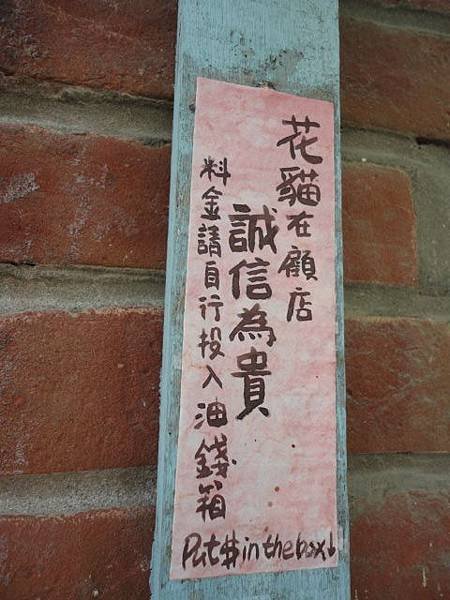 花貓在顧店
誠信為貴
料金請自行投入油錢箱
Put $ in the box↓